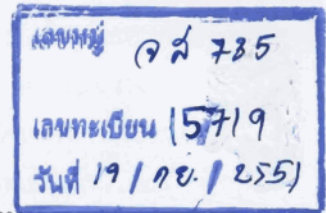 เลขหมู่ จส 735
เลขทะเบียน 15719
วันที่ 19 / กย. / 2551